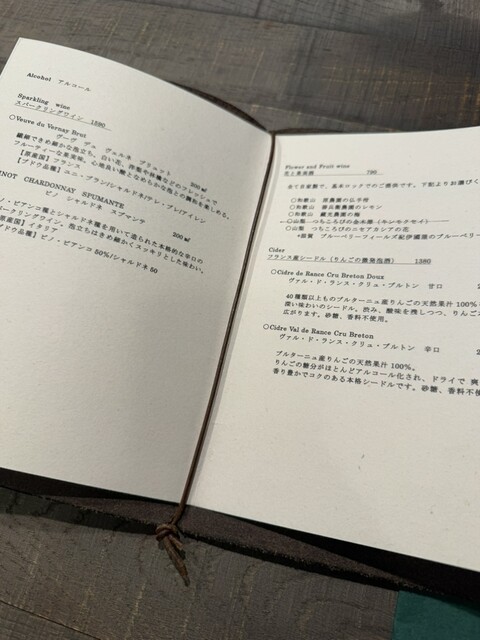 Alcohol アルコール
Sparkling wine
スパークリングワイン 1590
○Veuve du Vernay Brut
ヴーヴ デュ ヴェルネ ブリュット 200㎖
繊細できめ細かな泡立ち、白い花、洋梨や林檎などのフレッシュで
フルーティーな果実味。心地良い酸となめらかな泡としの調和を楽しめる。
【原産国】フランス
【ブドウ品種】ユニ・ブラン/シャルドネ/アレン
INOT CHARDONNAY SPUMANTE
ピノ シャルドネ スプマンテ 200㎖
ノ・ビアンコ種とシャルドネ種を用いて造られた本格的な辛口の
パークリングワイン。泡立ちはきめ細かくスッキリとした味わい。
原産国】イタリア
ドウ品種】ピノ・ビアンコ50%/シャルドネ50
Flower and Fruit wine
花と果実酒 790
全て自家製で、基本ロックでのご提供です。下記よりお選びく
○和歌山 農園の仏手柑
○和歌山 農園のレモン
○和歌山 農園の梅
○山梨 つちころびの金木犀（キンモクセイ）
○山梨 つちころびのニセアカシアの花
+滋賀 ブルーベリーフィールズ紀伊國屋のブルーベリー
Cider
フランス産シードル（りんごの微発泡酒） 1380
○Cidre de Rance Cru Breton Doux
ヴァル・ド・ランス・クリュ・ブルトン 甘口 2
40種類以上ものブルターニュ産りんごの天然果汁100%
深い味わいのシードル。渋み、酸味を残しつつ、りんご
広がります。砂糖、香料不使用。
○Cidre Val de Rance Cru Breton
ヴァル・ド・ランス・クリュ・ブルトン 辛口 2
ブルターニュ産りんごの天然果汁100%。
りんごの糖分がほとんどアルコール化され、ドライで 爽
香り豊かでコクのある本格シードルです。砂糖、香料不使